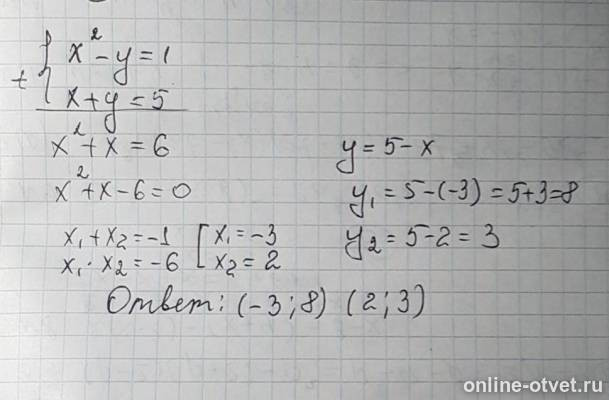 + { x² - y = 1
x + y = 5
x² + x = 6
x² + x - 6 = 0
x₁ + x₂ = -1
x₁ · x₂ = -6
[ x₁ = -3
x₂ = 2
y = 5 - x
y₁ = 5 - (-3) = 5 + 3 = 8
y₂ = 5 - 2 = 3
Ответ: (-3; 8) (2; 3)
online-otvet.ru